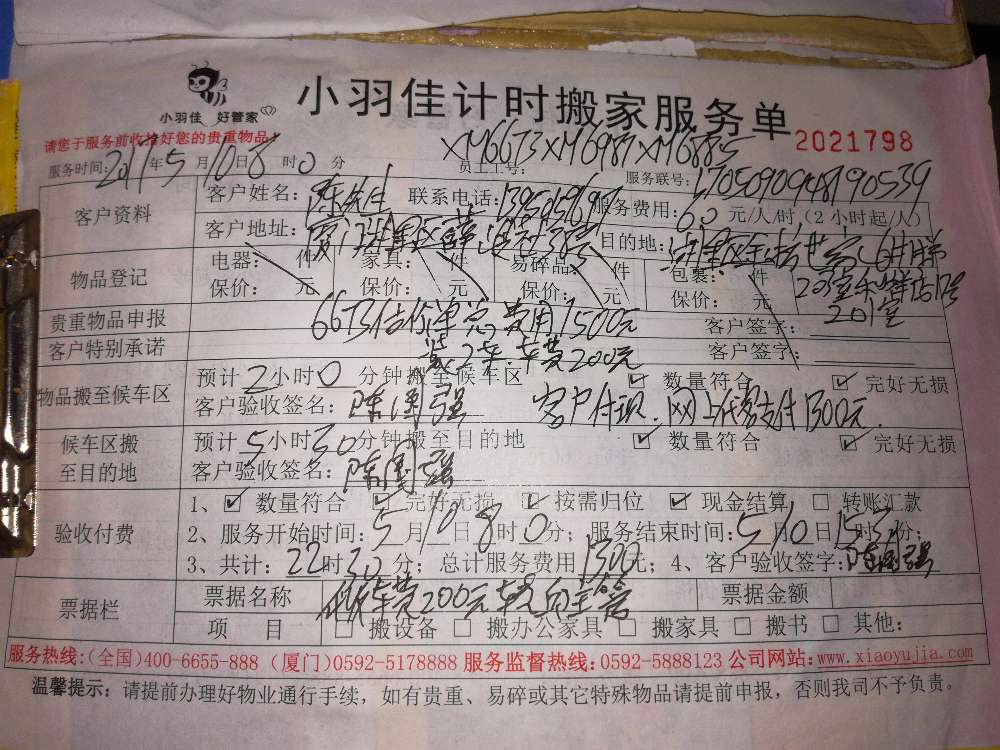 小羽佳 好管家
小羽佳计时搬家服务单
2021798
请您于服务前收拾好您的贵重物品!
XM6673XM6987XM6885
服务时间:2017年5月10日8时0分 员工工号: 服务联号:
客户资料
客户姓名:陈先生 联系电话: 服务费用:60元/人/时,(2小时起/人)
客户地址: 目的地:
物品登记
电器: 件 家具: 件 易碎品: 件 包裹: 件
保价: 元 保价: 元 保价: 元 保价: 元
201室
贵重物品申报 6673估价单总费用1500元 客户签字:
客户特别承诺 装2车.车费200元 客户签字:
物品搬至候车区
预计2小时0分钟搬至候车区 ☑ 数量符合 ☑ 完好无损
客户验收签名:陈国强 客户付现.网上代客支付1300元.
候车区搬至目的地
预计5小时30分钟搬至目的地 ☑ 数量符合 ☑ 完好无损
客户验收签名:陈国强
验收付费
1、☑ 数量符合 ☑ 完好无损 ☑ 按需归位 ☑ 现金结算 □ 转账汇款
2、服务开始时间:5月10日8时0分;服务结束时间:5月10日15时30分;
3、共计:22时30分;总计服务费用1300元;4、客户验收签字:陈国强
票据栏
票据名称 车费200元 票据金额
项 目 □ 搬设备 □ 搬办公家具 □ 搬家具 □ 搬书 □ 其他:
服务热线:(全国)400-6655-888 (厦门)0592-5178888 服务监督热线:0592-5888123 公司网站:www.xiaoyujia.com
温馨提示:请提前办理好物业通行手续,如有贵重、易碎或其它特殊物品请提前申报,否则我司不予负责。